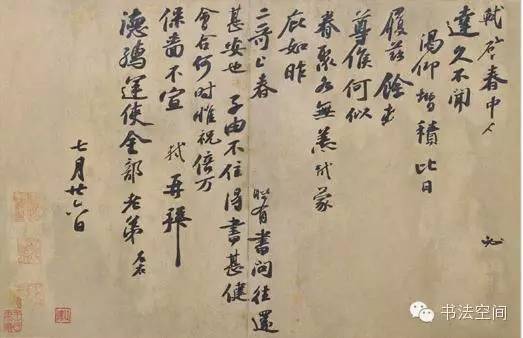 軾啓春中人 必
達久不聞
渴仰增積比日
履茲餘
尊候何似
眷聚各無恙軾蒙
庇如昨
二哥上春 時有書問往還
甚安也 子由不住得書甚健
會合何時惟祝倍万
保嗇不宣 軾再拜
德孺運使金部老弟
七月廿六日
书法空间